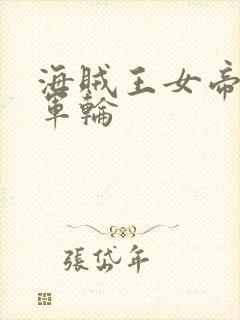 海賊王女帝
軍輪
張岱年